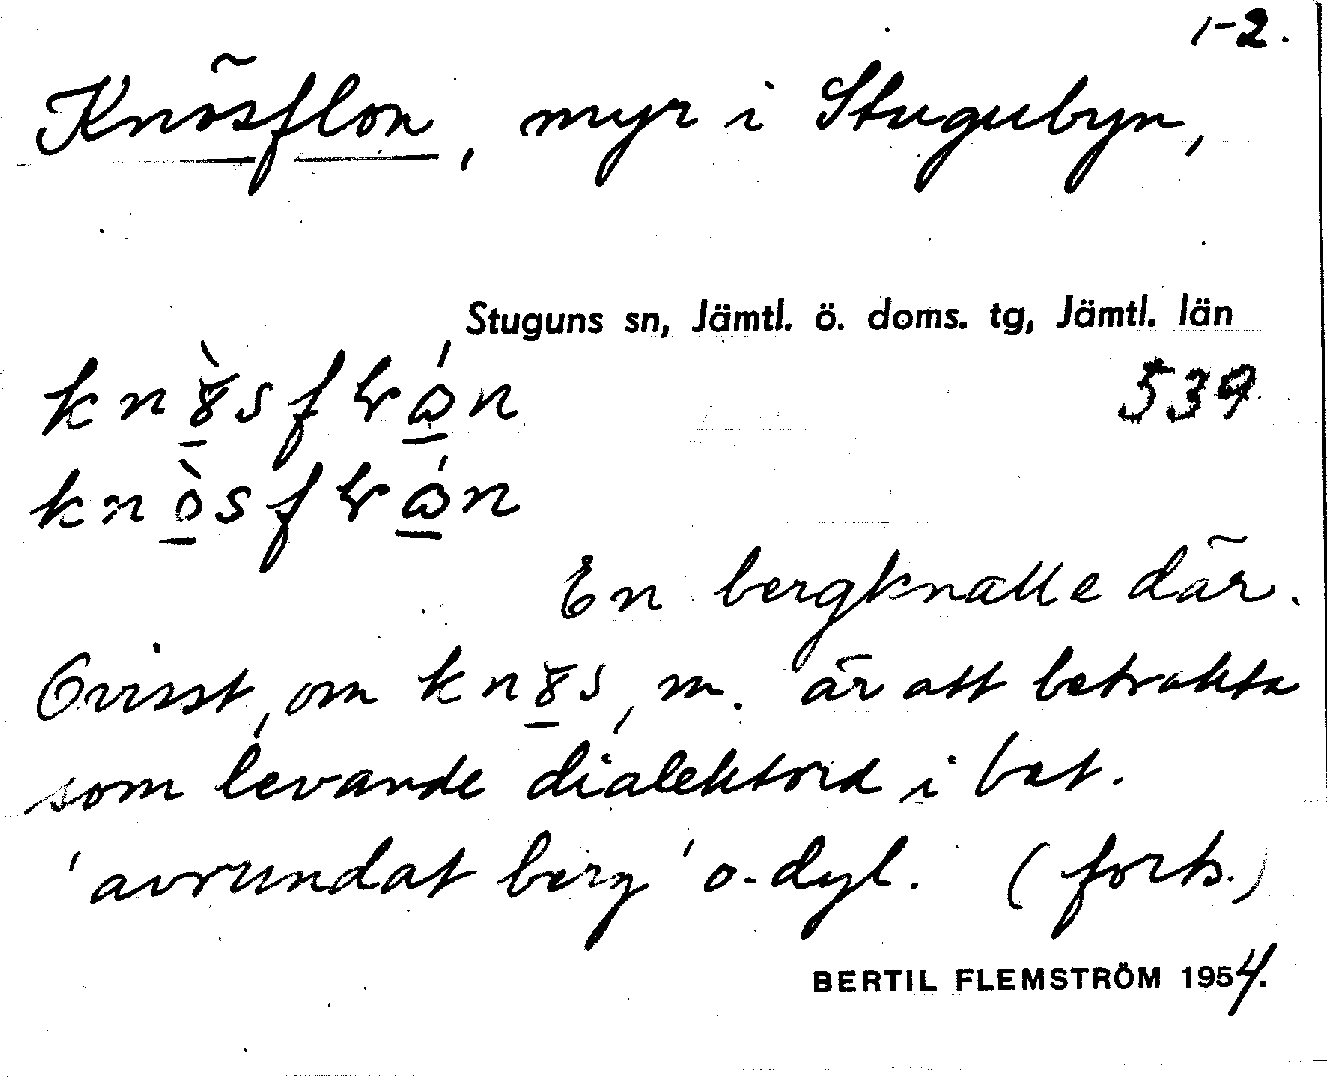 1-2.
Knösflon, myr i Stugubyn,
Stuguns sn, Jämtl. ö. doms. tg, Jämtl. län
539
En bergknalle där.
Ovisst, om knȣs, m. är att betrakta
som levande dialektord i bet.
'avrundat berg' o. dyl. (forts.)
BERTIL FLEMSTRÖM 1954.